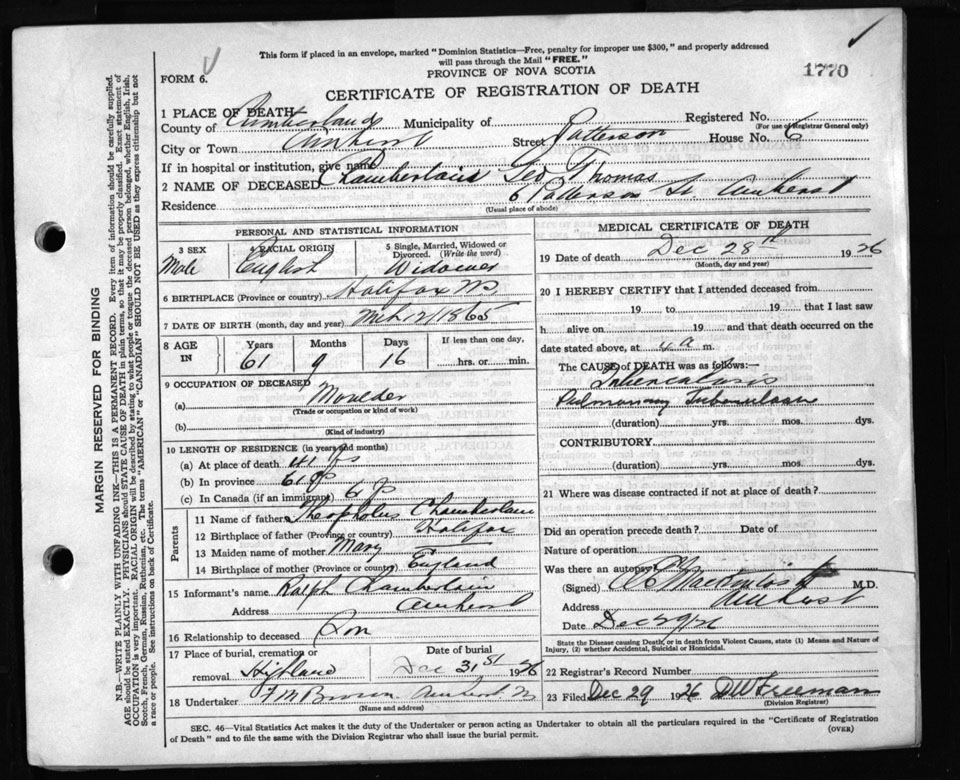 This form if placed in an envelope, marked "Dominion Statistics—Free, penalty for improper use $300," and properly addressed
will pass through the Mail "FREE."
FORM 6.
PROVINCE OF NOVA SCOTIA
1770
CERTIFICATE OF REGISTRATION OF DEATH
1 PLACE OF DEATH
County of Cumberland Municipality of Registered No.
(For use of Registrar General only)
City or Town Amherst Street Patterson House No. 6
If in hospital or institution, give name
2 NAME OF DECEASED Chamberlain Geo Thomas
Residence 6 Patterson St Amherst
(Usual place of abode)
PERSONAL AND STATISTICAL INFORMATION
3 SEX RACIAL ORIGIN 5 Single, Married, Widowed or Divorced. (Write the word)
Male English Widower
6 BIRTHPLACE (Province or country) Halifax NS
7 DATE OF BIRTH (month, day and year) Mch 12/1865
8 AGE IN Years Months Days If less than one day,
61 9 16 hrs. or min.
9 OCCUPATION OF DECEASED
(a) Moulder
(Trade or occupation or kind of work)
(b)
(Kind of industry)
10 LENGTH OF RESIDENCE (in years and months)
(a) At place of death
(b) In province 61
(c) In Canada (if an immigrant) 61
Parents
11 Name of father Theopholus Chamberlain
12 Birthplace of father (Province or country) Halifax
13 Maiden name of mother Mary
14 Birthplace of mother (Province or country) England
15 Informant's name Ralph Chamberlain
Address Amherst
16 Relationship to deceased Son
17 Place of burial, cremation or removal Highland Date of burial Dec 31st 1926
18 Undertaker F M Brown Amherst NS
(Name and address)
MEDICAL CERTIFICATE OF DEATH
19 Date of death Dec 28th 1926
(Month, day and year)
20 I HEREBY CERTIFY that I attended deceased from
19 to 19 that I last saw
h alive on 19 and that death occurred on
date stated above, at 4 a m.
The CAUSE of DEATH was as follows:—
Tuberculosis
Pulmonary Tuberculosis
(duration) yrs. mos. dys.
CONTRIBUTORY
(duration) yrs. mos. dys.
21 Where was disease contracted if not at place of death?
Did an operation precede death? Date of
Nature of operation
Was there an autopsy?
(Signed) M.D.
Address Amherst
Date Dec 29/26
State the Disease causing Death, or in death from Violent Causes, state (1) Means and Nature of
Injury, (2) whether Accidental, Suicidal or Homicidal.
22 Registrar's Record Number
23 Filed Dec 29 1926 D W Freeman
(Division Registrar)
SEC. 46—Vital Statistics Act makes it the duty of the Undertaker or person acting as Undertaker to obtain all the particulars required in the "Certificate of Registration
of Death" and to file the same with the Division Registrar who shall issue the burial permit.
(OVER)
MARGIN RESERVED FOR BINDING
N.B.—WRITE PLAINLY WITH UNFADING INK—THIS IS A PERMANENT RECORD. Every item of information should be carefully supplied.
AGE should be stated EXACTLY. PHYSICIANS should STATE CAUSE OF DEATH in plain terms, so that it may be properly classified. Exact statement of
OCCUPATION is very important. RACIAL ORIGIN will be described by stating to what people or tongue the deceased person belonged, whether English, Irish,
Scotch, French, German, Russian, Ruthenian, etc. The terms "AMERICAN" or "CANADIAN" SHOULD NOT BE USED as they express citizenship but not
a race or people. See instructions on back of Certificate.